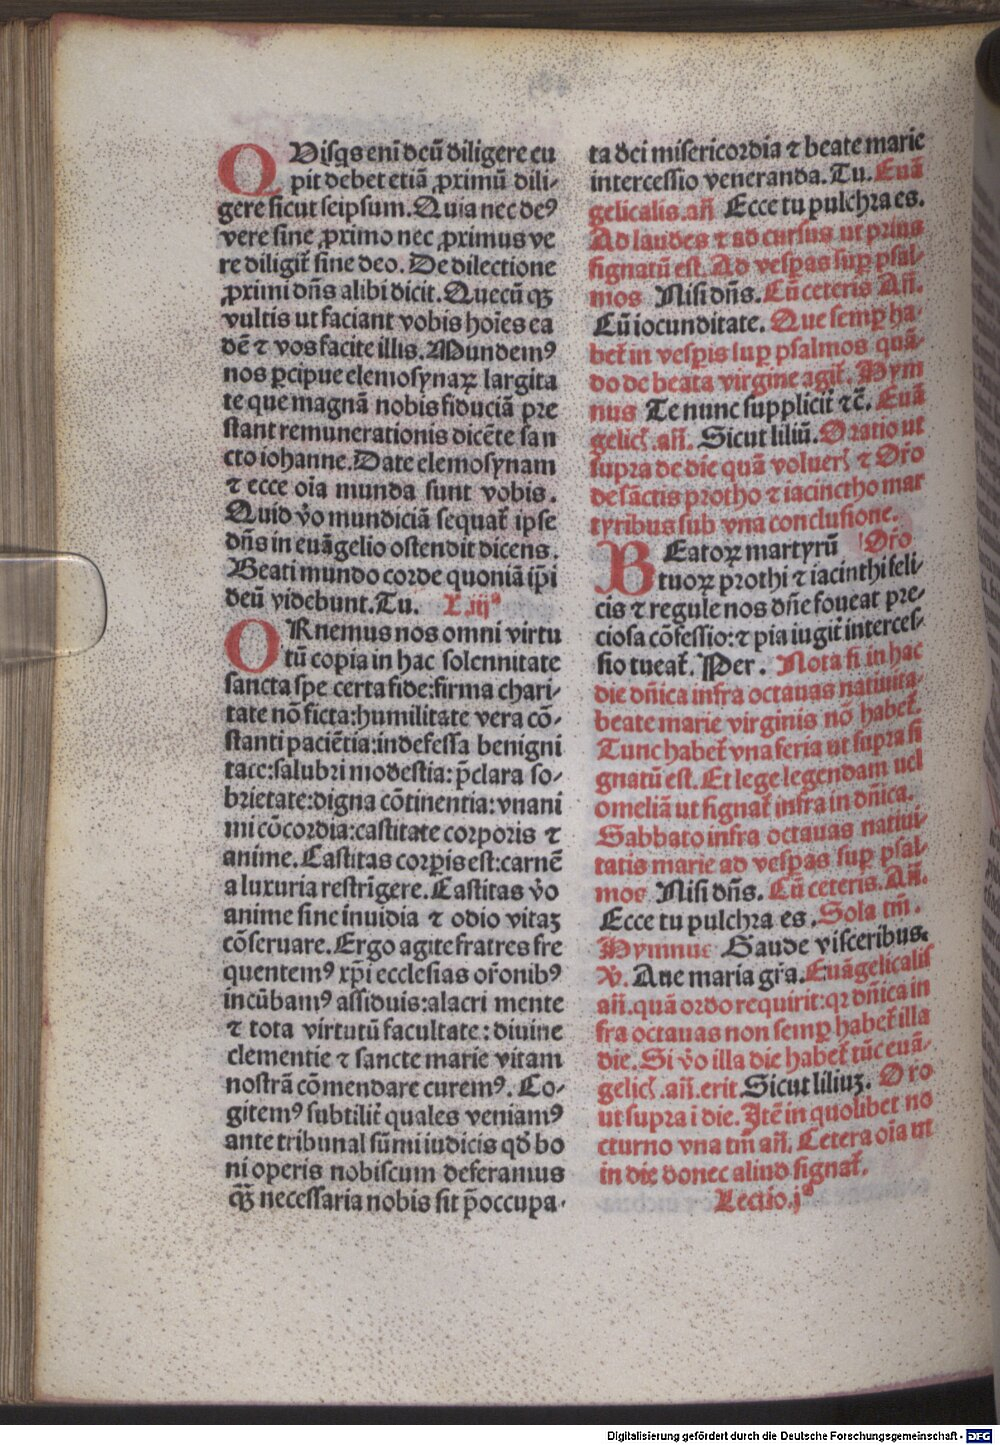 QVisqs enī deū diligere cu
pit debet etiā ꝓximū dili-
gere sicut seipsum. Quia nec deꝰ
vere sine ꝓximo nec ꝓximus ve
re diligit̃ sine deo. De dilectione
ꝓximi dn̄s alibi dicit. Quecū qꝫ
vultis ut faciant vobis hoīes ea
dē ⁊ vos facite illis. Mundemꝰ
nos p̄cipue elemosynaꝝ largita
te que magnā nobis fiduciā pre
stant remunerationis dicēte san
cto iohanne. Date elemosynam
⁊ ecce oīa munda sunt vobis.
Quid v̄o mundiciā sequat̃ ipse
dn̄s in euāgelio ostendit dicens.
Beati mundo corde quoniā ip̄i
deū videbunt. Tu. L. iijª
ORnemus nos omni virtu
tū copia in hac solennitate
sancta spe certa fide: firma chari-
tate nō ficta: humilitate vera cō-
stanti paciētia: indefessa benigni
tate: salubri modestia: p̄clara so-
brietate: digna cōtinentia: vnani
mi cōcordia: castitate corporis ⁊
anime. Castitas corꝑis est: carnē
a luxuria restrīgere. Castitas v̄o
anime sine inuidia ⁊ odio vitaꝫ
cōseruare. Ergo agite fratres fre
quentemꝰ xp̄i ecclesias or̄onibꝰ
incūbamꝰ assiduis: alacri mente
⁊ tota virtutū facultate: diuine
clementie ⁊ sancte marie vitam
nostrā cōmendare curemꝰ. Co-
gitemꝰ subtilit̃ quales veniamꝰ
ante tribunal sūmi iudicis qd̄ bo
ni operis nobiscum deferamus
qꝫ̄ necessaria nobis sit p̄occupa-
ta dei misericordia ⁊ beate marie
intercessio veneranda. Tu. Euā
gelicalis. an̄. Ecce tu pulchra es.
Ad laudes ⁊ ad cursus ut prius
signatū est. Ad vesꝑas suꝑ psal-
mos Nisi dn̄s. Cū ceteris An̄.
Cū iocunditate. Que semꝑ ha-
bet̃ in vesꝑis suꝑ psalmos quā-
do de beata virgine agit̃. Hym
nus Te nunc supplicit̃ ⁊c̄. Euā
gelicꝭ. an̄. Sicut liliū. Oratio ut
supra de die quā volueꝭ ⁊ Or̄o
de sāctis protho ⁊ iacinctho mar
tyribus sub vna conclusione.
BEatoꝝ martyrū Or̄o
tuoꝝ prothi ⁊ iacinthi feli-
cis ⁊ regule nos dn̄e foueat pre-
ciosa cōfessio: ⁊ pia iugit̃ interces-
sio tueat̃. Per. Nota si in hac
die dn̄ica infra octauas natiuita-
beate marie virginis nō habet̃.
Tunc habet̃ vna feria ut supra si
gnatū est. Et lege legendam uel
omeliā ut signat̃ infra in dn̄ica.
Sabbato infra octauas natiui-
tatis marie ad vesꝑas suꝑ psal-
mos Nisi dn̄s. Cū ceteris. An̄.
Ecce tu pulchra es. Sola tm̄.
Hymnus Gaude visceribus.
V. Aue maria gr̄a. Euāgelicalis
an̄. quā ordo requirit: qr dn̄ica in
fra octauas non semꝑ habet̃ illa
die. Si v̄o illa die habet̃ tūc euā-
gelicꝭ. an̄. erit. Sicut liliuꝫ. Oro
ut supra i die. Itē in quolibet no
cturno vna tm̄ an̄. Cetera oīa ut
in die donec aliud signat̃.
Lectio. jª
Digitalisierung gefördert durch die Deutsche Forschungsgemeinschaft - DFG